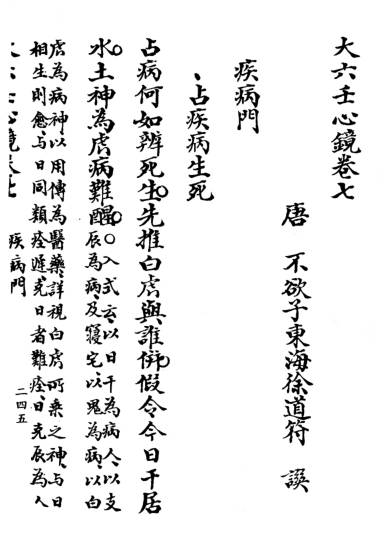 大六壬心鏡卷七
唐　不欲子東海徐道符　譔
疾病門
、占疾病生死
占病何如辨死生。先推白虎與誰併。假令今日干居
水。土神為虎病難醒。○入式云、以日干為病人、以支
辰為病、及寢宅、以鬼為病、以白
虎為病神、以用傳為醫藥、詳視白虎所乘之神、與日
相生則愈、與日同類痊遲、克日者難痊、日克辰為人
大六壬心鏡卷七　疾病門　二四五